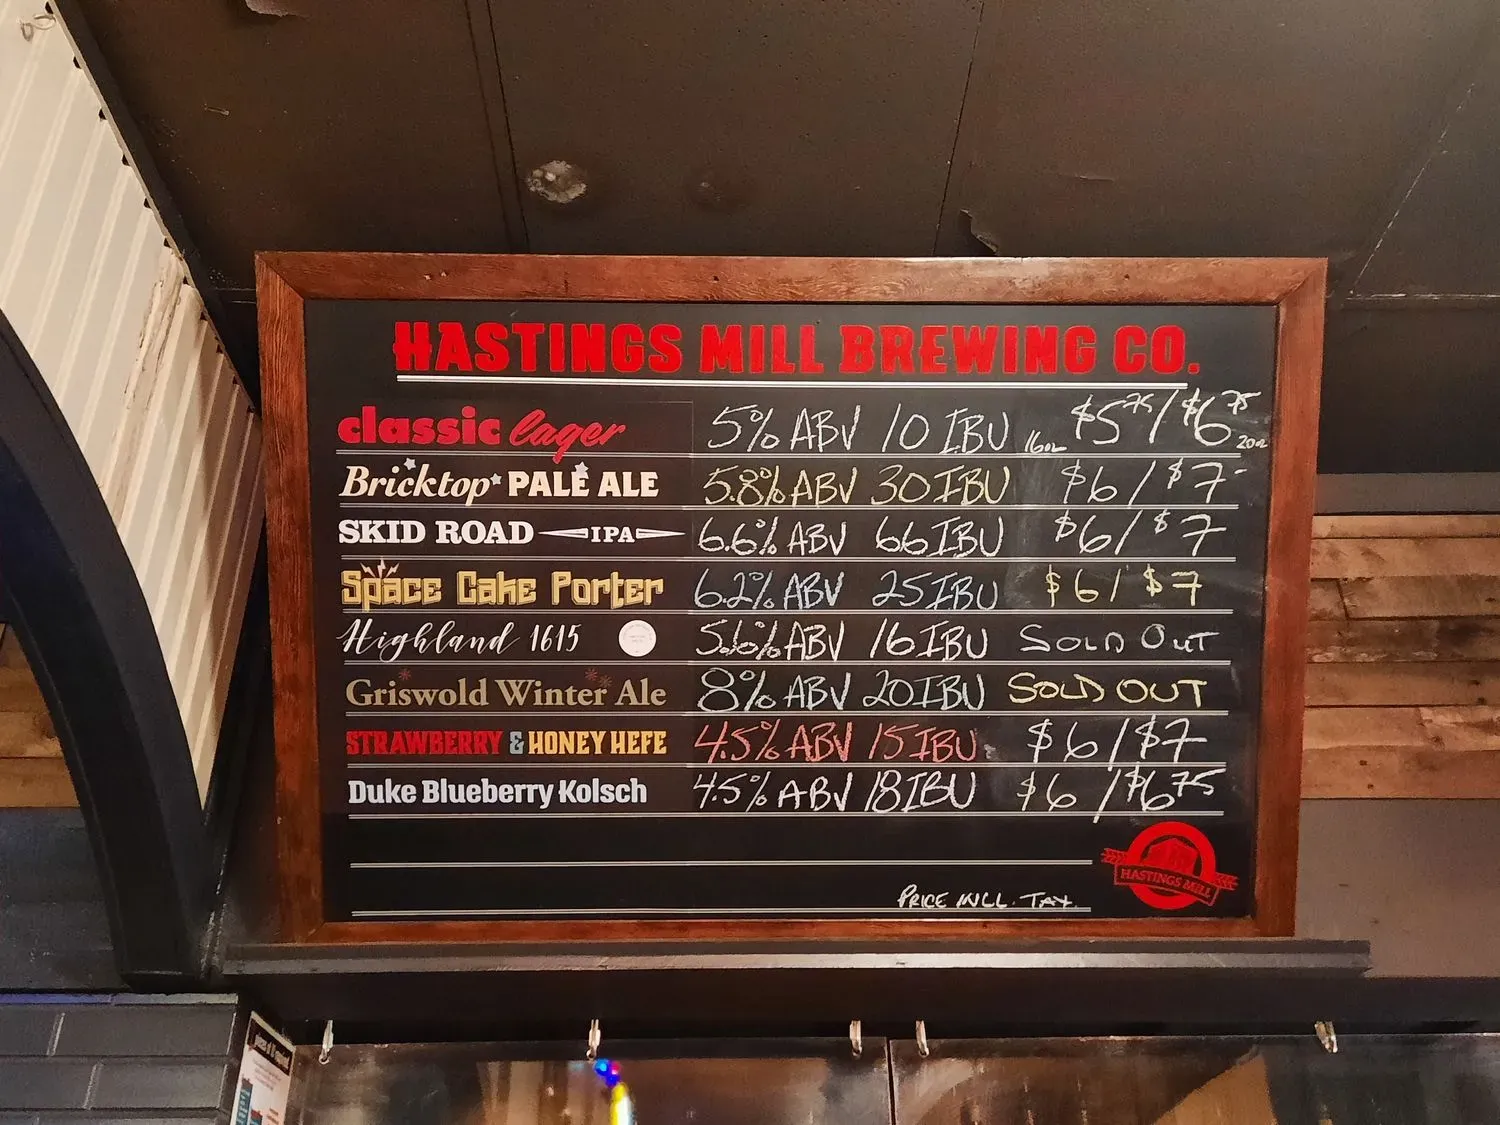 HASTINGS MILL BREWING CO.
classic lager 5% ABV 10 IBU 16oz $5.75 / $6.75 20oz
Bricktop PALE ALE 5.8% ABV 30 IBU $6 / $7-
SKID ROAD IPA 6.6% ABV 66 IBU $6 / $7
Space Cake Porter 6.2% ABV 25 IBU $6 / $7
Highland 1615 5.6% ABV 16 IBU SOLD OUT
Griswold Winter Ale 8% ABV 20 IBU SOLD OUT
STRAWBERRY & HONEY HEFE 4.5% ABV 15 IBU $6 / $7
Duke Blueberry Kolsch 4.5% ABV 18 IBU $6 / $6.75
HASTINGS MILL
PRICE INCL. TAX.